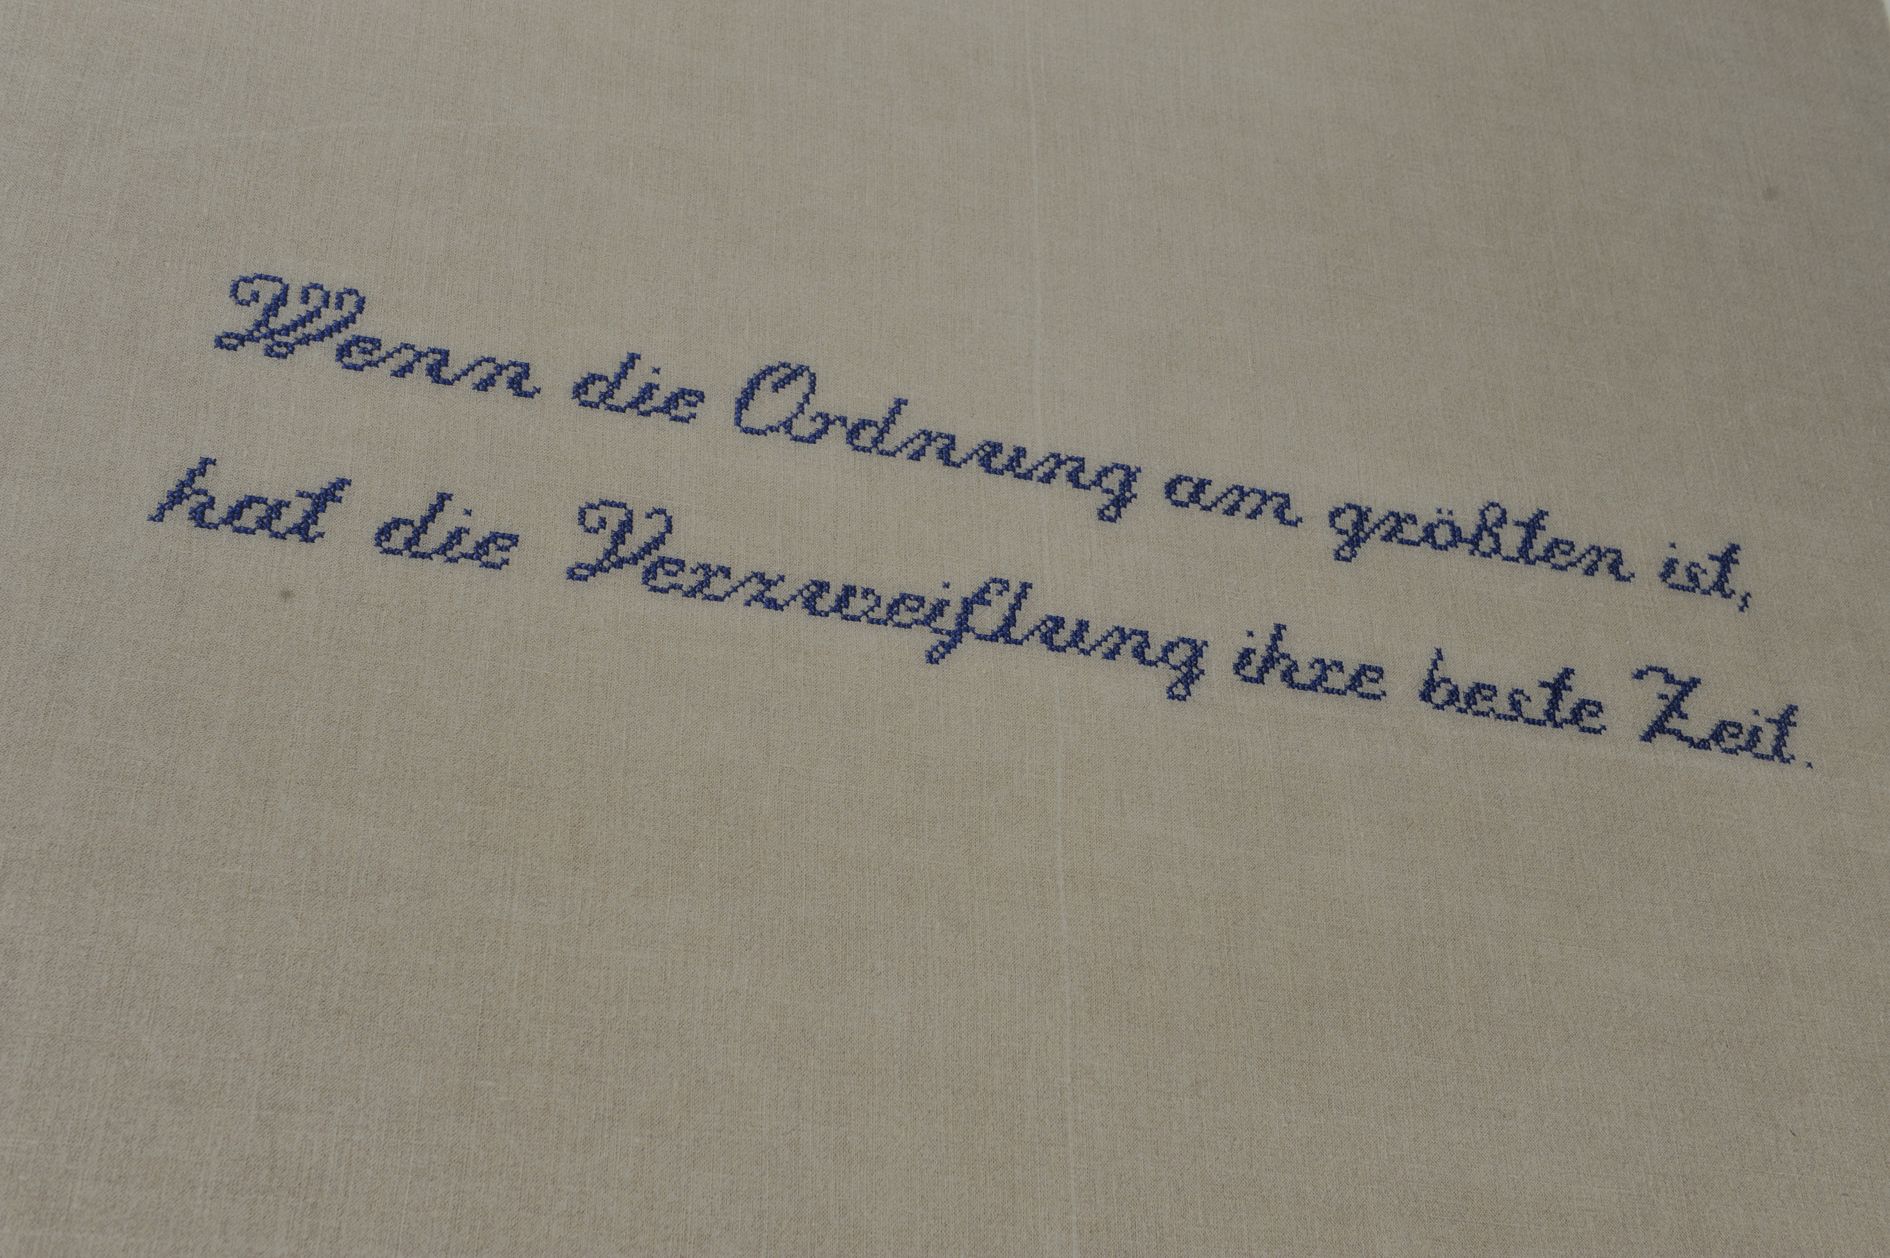 Wenn die Ordnung am größten ist,
hat die Verzweiflung ihre beste Zeit.